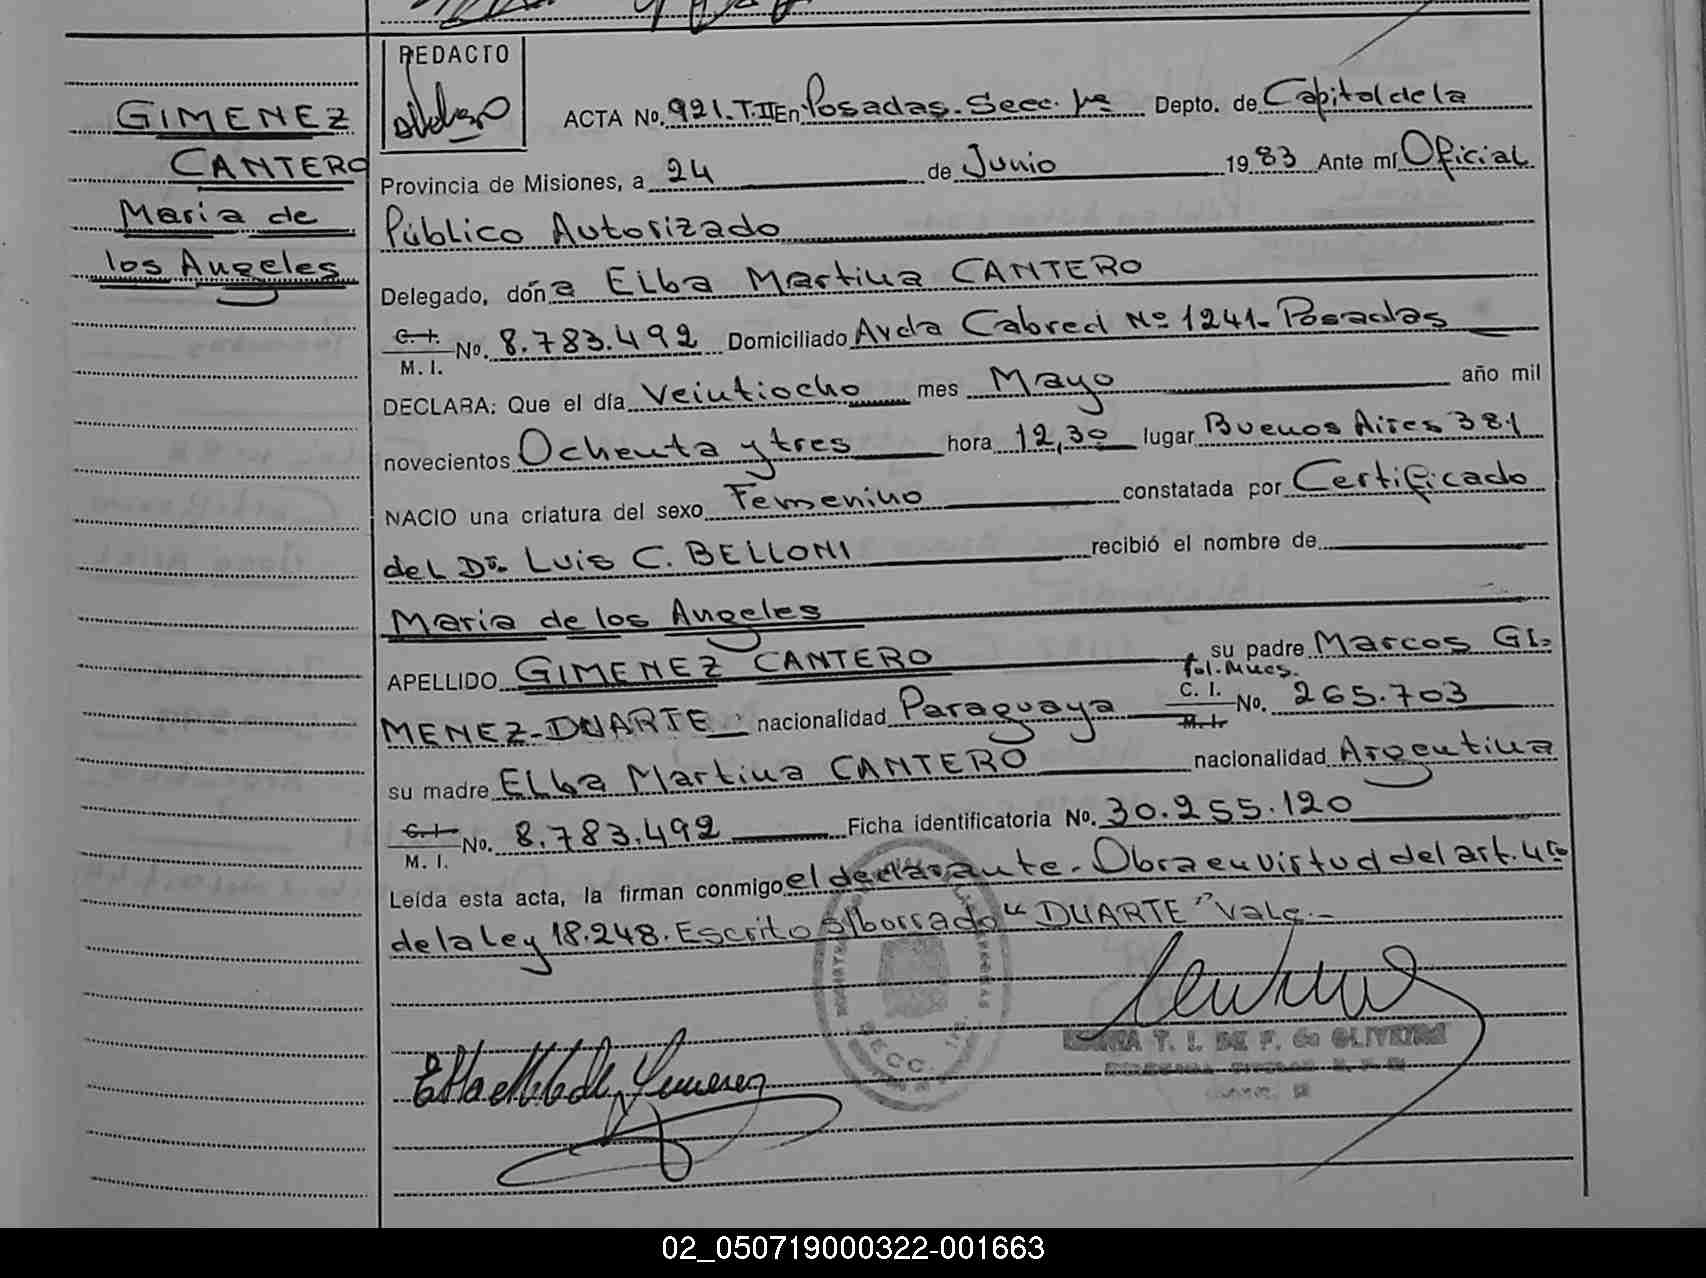 REDACTO
GIMENEZ
CANTERO
Maria de
los Angeles
ACTA No. 921. T.II En Posadas. Secc. 1ra Depto. de Capital de la
Provincia de Misiones, a 24 de Junio 1983 Ante mí Oficial
Público Autorizado
Delegado, doña Elba Martina CANTERO
C. I.
M. I. No. 8.783.492 Domiciliado Avda Cabred Nº 1241- Posadas
DECLARA: Que el día Veintiocho mes Mayo año mil
novecientos Ochenta y tres hora 12,30 lugar Buenos Aires 381
NACIO una criatura del sexo Femenino constatada por Certificado
del Dr. Luis C. BELLONI recibió el nombre de
Maria de los Angeles
APELLIDO GIMENEZ CANTERO su padre Marcos GI-
Pol. Mnes.
MENEZ-DUARTE nacionalidad Paraguaya C. I.
M. I. No. 265.703
su madre Elba Martina CANTERO nacionalidad Argentina
C. I.
M. I. No. 8.783.492 Ficha identificatoria No. 30.255.120
Leída esta acta, la firman conmigo el declarante. Obra en virtud del art. 4to
de la Ley 18.248. Escrito s/borrado "DUARTE" Vale.-
T. I. DE F. de OLIVEIRA
SECC. 1ra
02_050719000322-001663